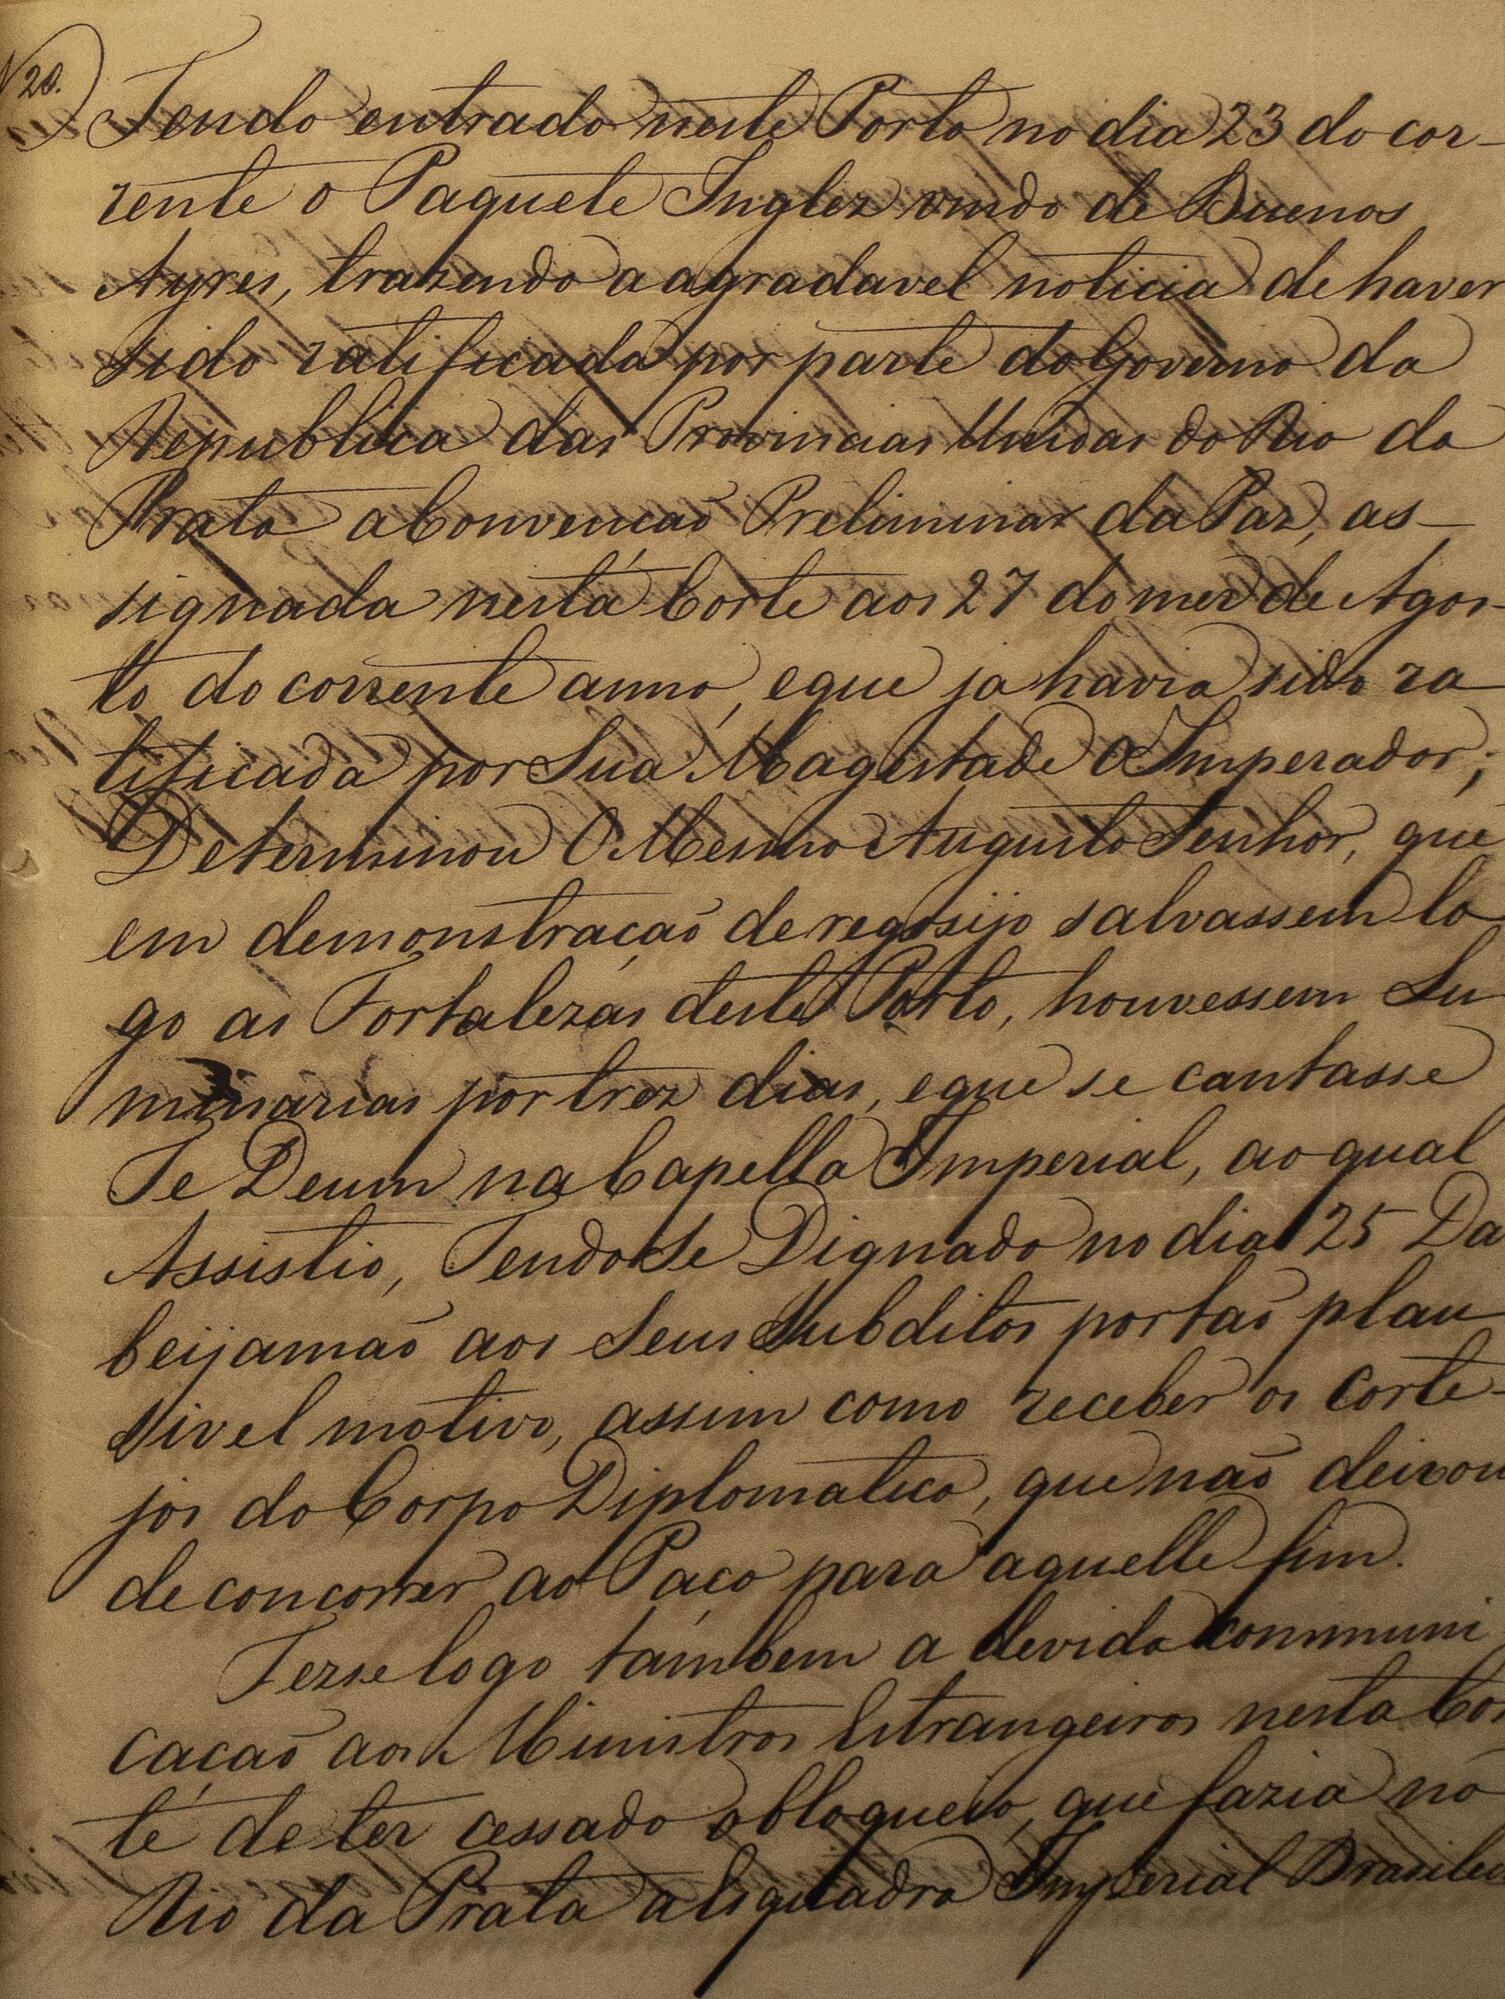 N 20.
Tendo entrado neste Porto no dia 23 do cor-
rente o Paquete Inglez vindo de Buenos
Ayres, trazendo a agradavel noticia de haver
sido ratificada por parte do Governo da
Republica das Provincias Unidas do Rio da
Prata a Convenção Preliminar da Paz, as-
signada nesta Corte aos 27 do mez de Agos-
to do corrente anno, e que ja havia sido ra
tificada por Sua Magestade O Imperador;
Determinou O Mesmo Augusto Senhor, que
em demonstração de regosijo salvassem lo
go as Fortalezas deste Porto, houvessem Lu
minarias por trez dias, e que se cantasse
Te Deum na Capella Imperial, ao qual
Assistio, Tendo Se Dignado no dia 25 Da
beijamaõ aos Seus Subditos por taõ plau
sivel motivo, assim como receber os corte-
jos do Corpo Diplomatico, que naõ deixou
de concorrer ao Paço para aquelle fim.
Fez se logo tambem a devida communi
cação aos Ministros Estrangeiros nesta Cor
te de ter cessado o bloqueio, que fazia no
Rio da Prata a Esquadra Imperial Brasilei